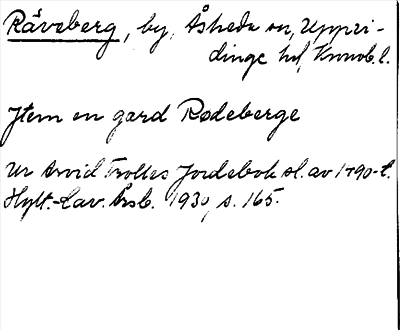 Råveberg, by, Åsheda sn, Uppvi-
dinge hd, Kronob. l.
Jtem en gard Rodeberge
Ur Arvid Trolles Jordebok sl. av 1490-t.
Hylt.-Cav. Årsb. 1930, s. 165.